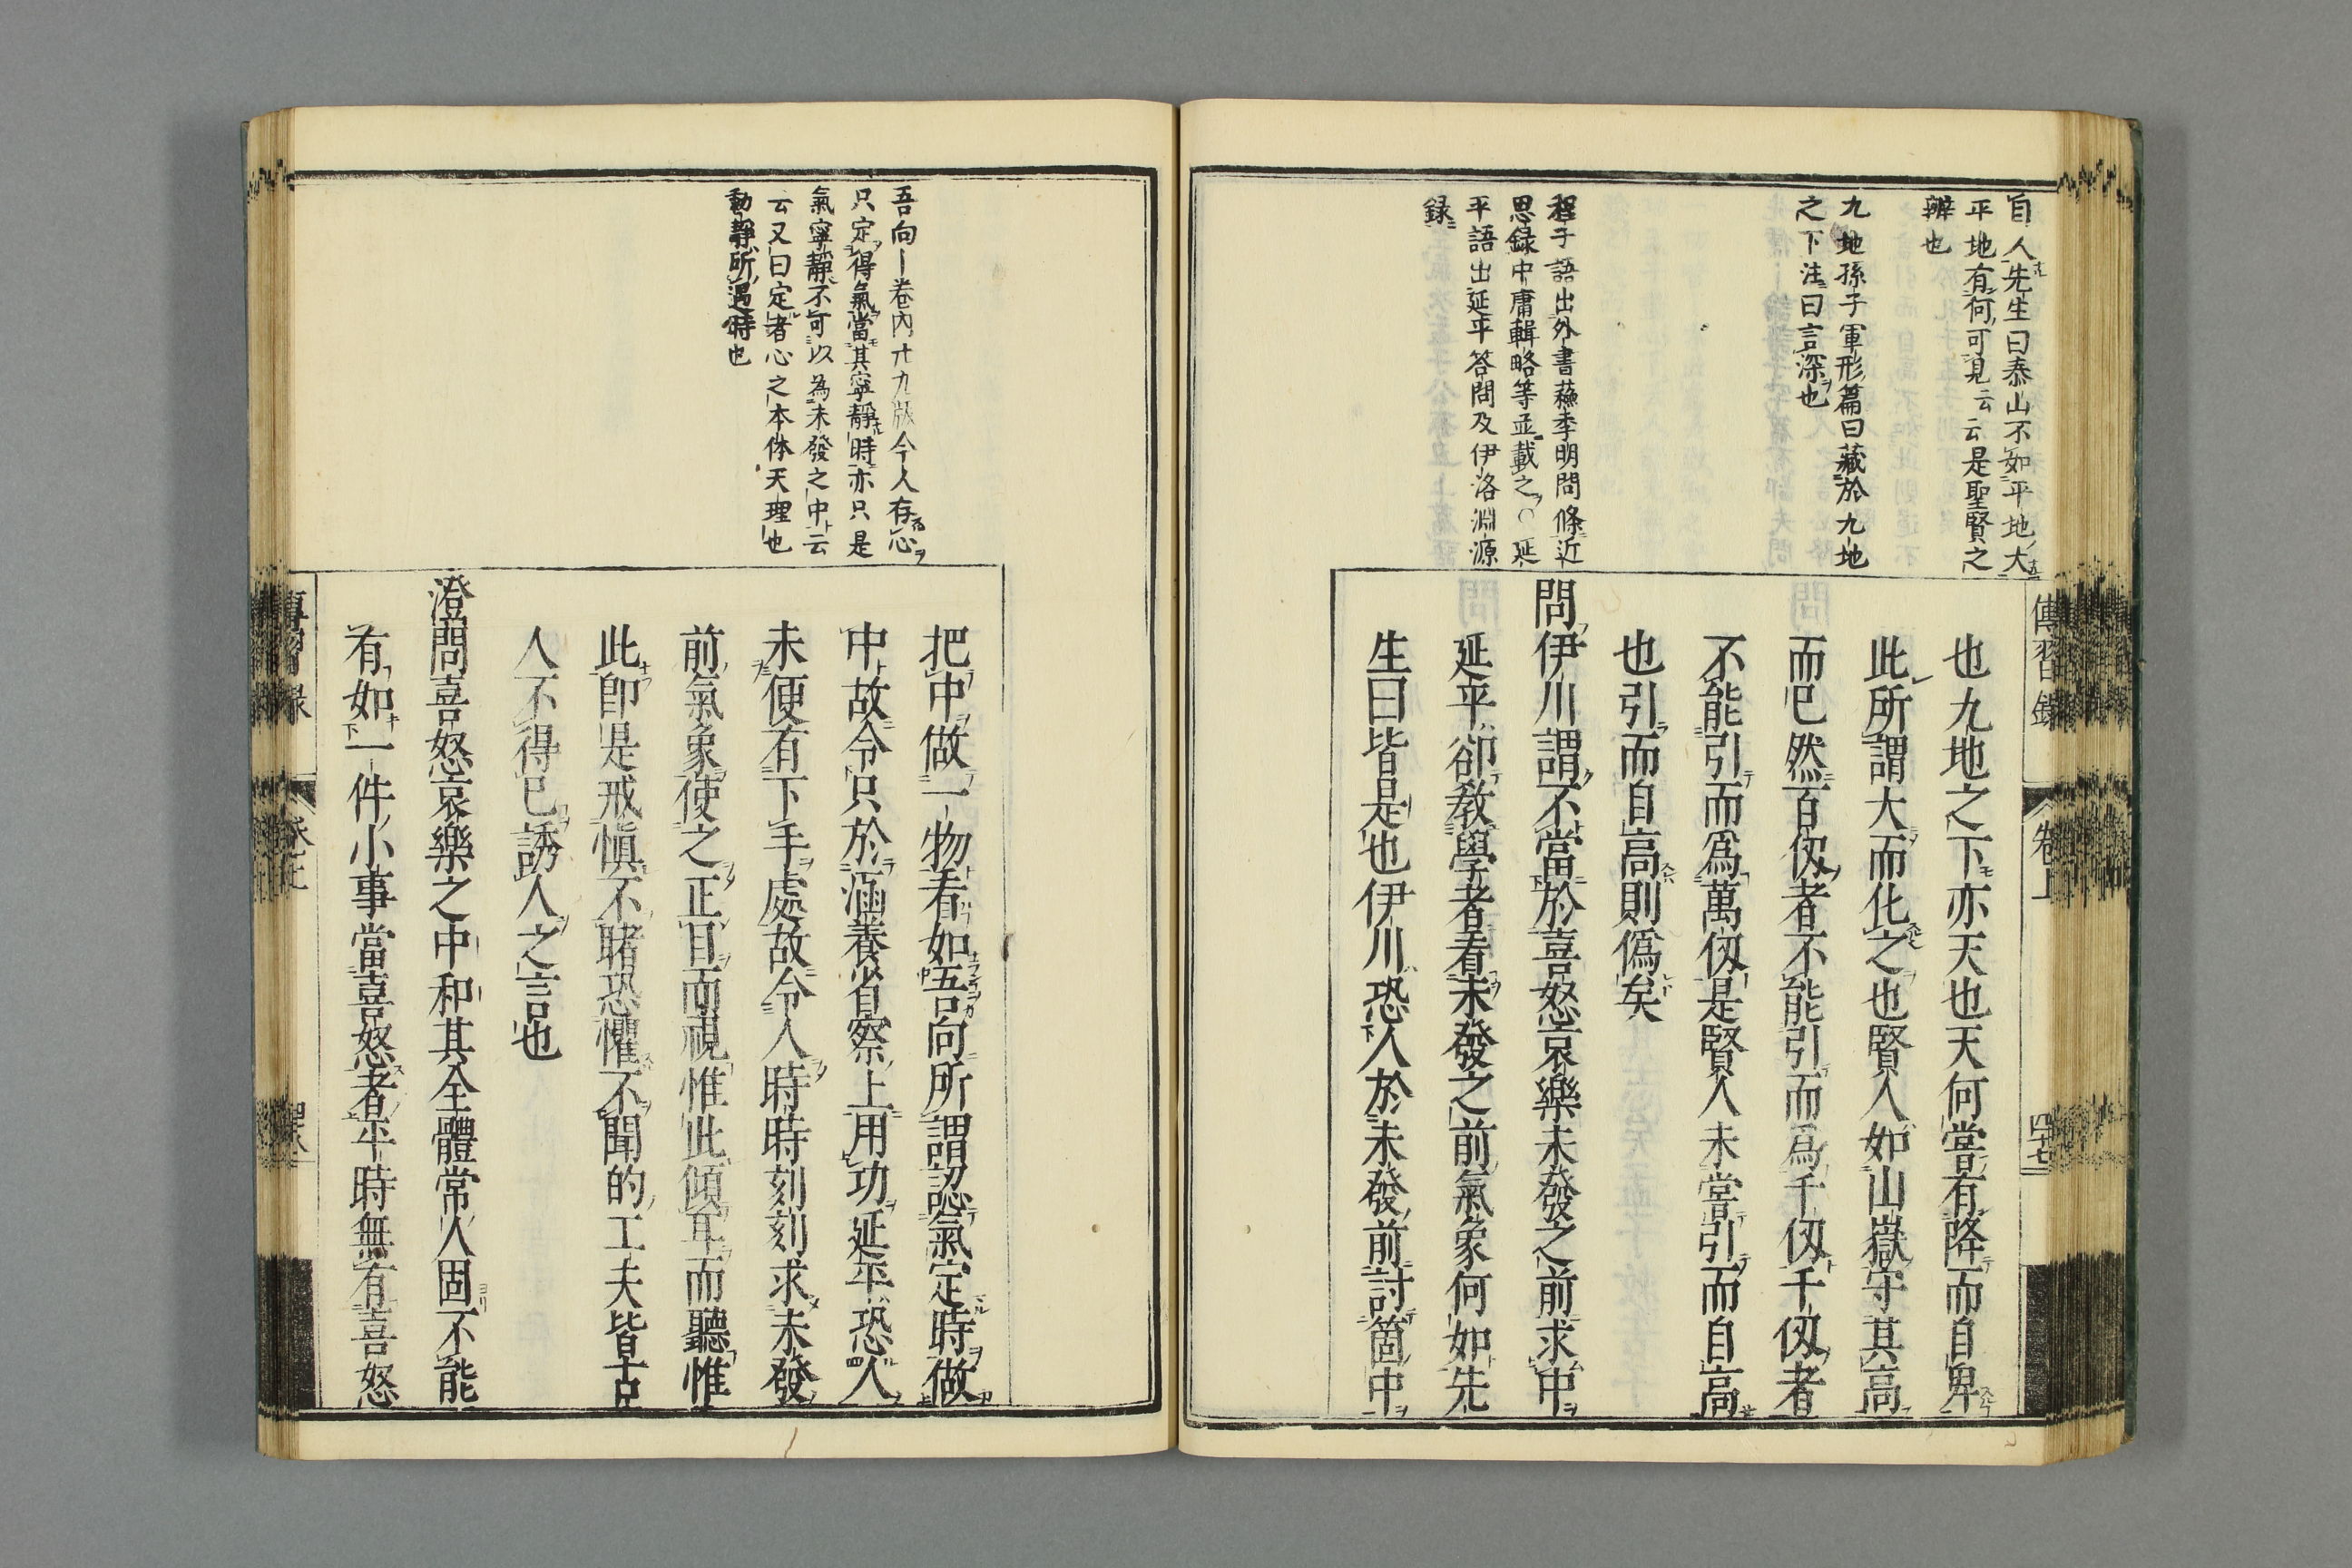 自人先生曰泰山不如平地大
平地有何可見云云是聖賢之
辨也
九地孫子軍形篇曰藏於九地
之下注曰言深也
程子語出外書蘓季明問條近
思録中庸輯略等並載之○延
平語出延平答問及伊洛淵源
録
傳習録
卷上
四十七
也九地之下亦天也天何嘗有降而自卑
此所謂大而化之也賢人如山嶽守其高
而已然百仭者不能引而爲千仭千仭者
不能引而爲萬仭是賢人未嘗引而自高
也引而自高則僞矣
問伊川謂不當於喜怒哀樂未發之前求中
延平卻敎學者看未發之前氣象何如先
生曰皆是也伊川恐人於未發前討箇中
吾向｜卷內廾九版今人存心
只定得氣當其寧靜時亦只是
氣寧靜不可以為未發之中云
云又曰定者心之本体天理也
動靜所遇時也
把中做一物看如吾向所謂認氣定時做
中故令只於涵養省察上用功延平恐人
未便有下手處故令人時時刻刻求未發
前氣象使之正目而視惟此傾耳而聽惟
此即是戒愼不睹恐懼不聞的工夫皆古
人不得已誘人之言也
澄問喜怒哀樂之中和其全體常人固不能
有如一件小事當喜怒者平時無有喜怒
傳習録